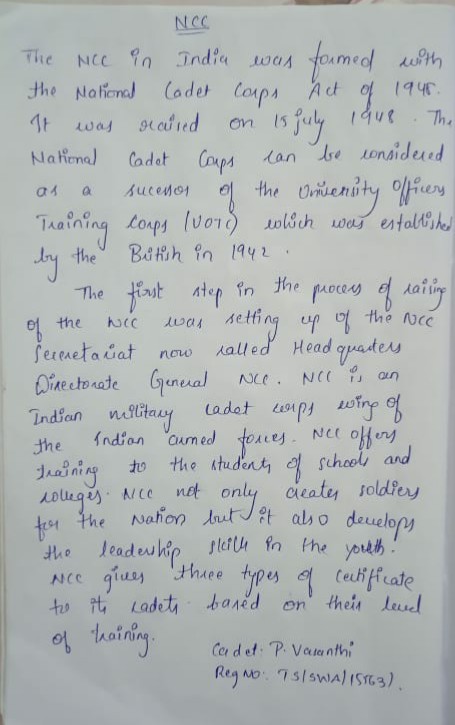 NCC
The NCC in India was formed with
the National Cadet Corps Act of 1948.
It was raised on 15 july 1948. The
National Cadet Corps can be considered
as a sucessor of the University Officers
Training Corps (UOTC) which was established
by the British in 1942.
The first step in the process of raising
of the NCC was setting up of the NCC
Secretariat now called Headquaters
Directorate General NCC. NCC is an
Indian military cadet corps wing of
the Indian armed forces. NCC offers
training to the students of schools and
colleges. NCC not only creates soldiers
for the Nation but it also develops
the leadership skills in the youth.
NCC gives three types of certificate
to its cadets based on their level
of training.
Cadet: P. Vasanthi
Reg No: TS/SWA/